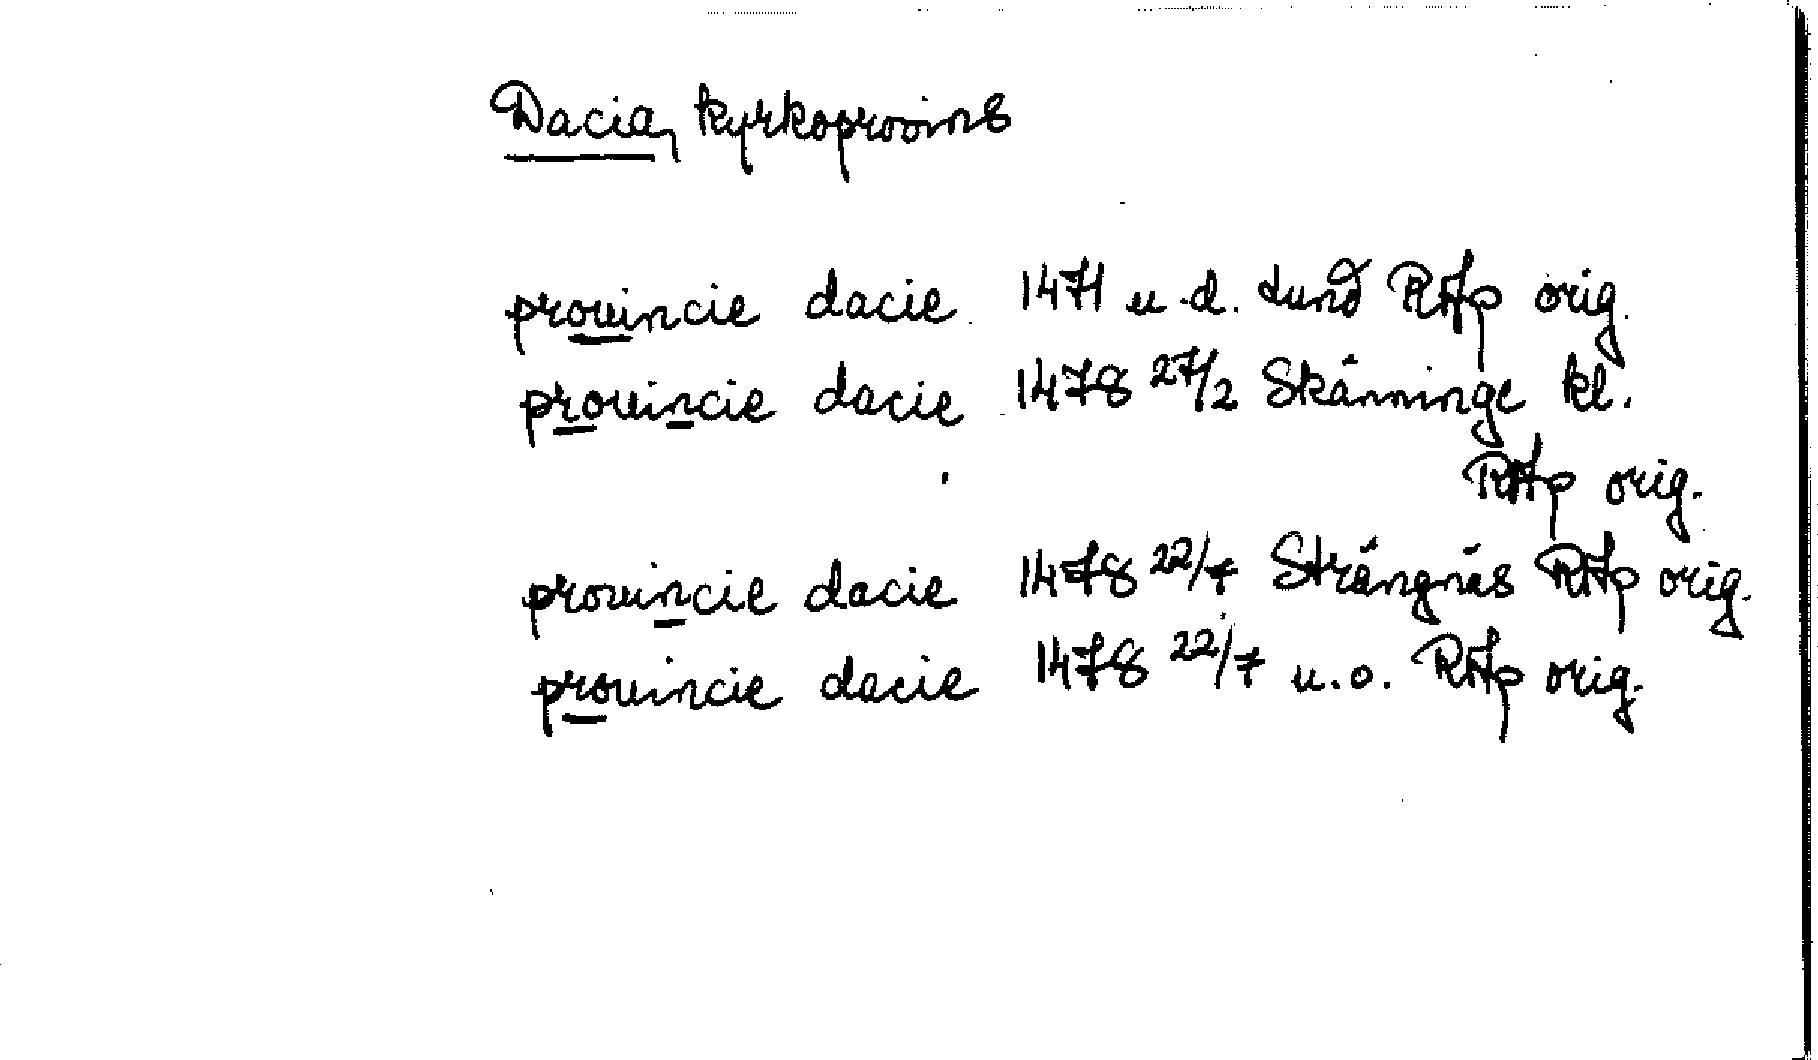 Dacia, kyrkoprovins
prouincie dacie 1471 u.d. Lund RAp orig.
prouincie dacie 1478 27/2 Skänninge kl.
RAp orig.
prouincie dacie 1478 22/7 Strängnäs RAp orig.
prouincie dacie 1478 22/7 u.o. RAp orig.